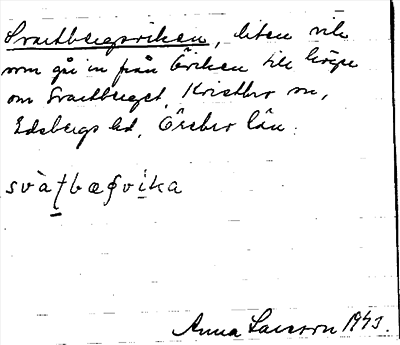 Svartbergsviken, liten vik
som går in från Ölviken till höger
om Svartberget, Kristbr sn,
Edsbergs hd, Örebro län.
svàṭbæɽvika
Anna Larsson 1943.